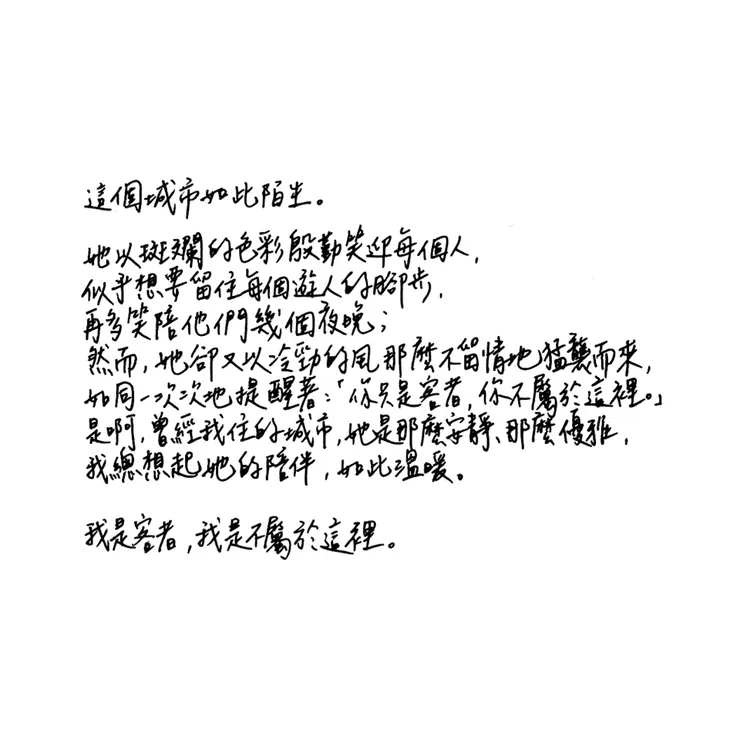 這個城市如此陌生。
她以斑斕的色彩殷勤笑迎每個人，
似乎想要留住每個遊人的腳步，
再多笑陪他們幾個夜晚；
然而，她卻又以冷勁的風那麼不留情地猛襲而來，
如同一次次地提醒著：「你只是客者，你不屬於這裡。」
是啊，曾經我住的城市，她是那麼安靜、那麼優雅，
我總想起她的陪伴，如此溫暖。
我是客者，我是不屬於這裡。